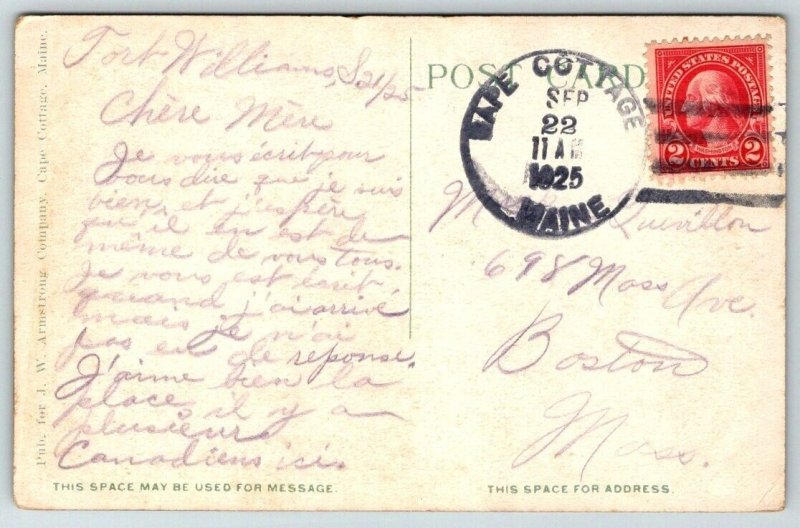 Fort Williams, S 21/25
Chère Mère
Je vous écrit pour
vous dire que je suis
bien, et j'espère
qu'il en est de
même de vous tous.
Je vous est écrit,
quand j'ai arrivé
mais je n'ai
pas eu de réponse.
J'aime bien la
place, il y a
plusieurs
Canadiens ici.
THIS SPACE MAY BE USED FOR MESSAGE.
Pub. for J. W. Armstrong Company, Cape Cottage, Maine.
POST CARD
CAPE COTTAGE
SEP
22
11 AM
1925
MAINE
UNITED STATES POSTAGE
WASHINGTON
2 CENTS 2
Quevillon
698 Mass Ave.
Boston
Mass.
THIS SPACE FOR ADDRESS.